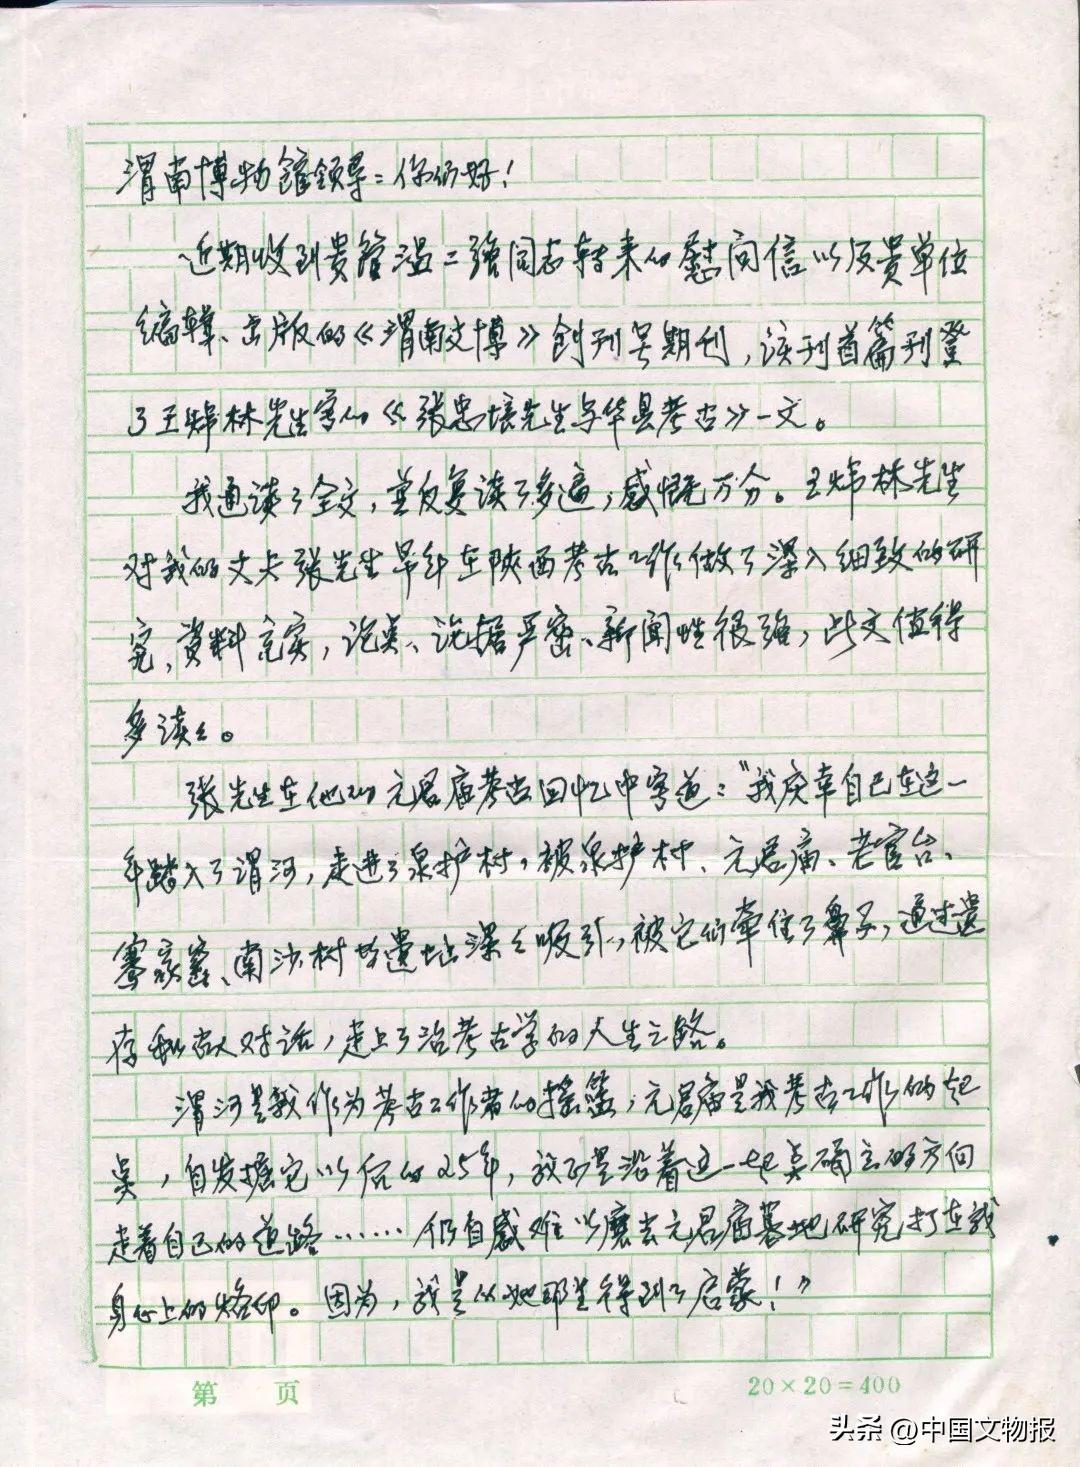 渭南博物馆领导：你们好！
近期收到贵馆温二强同志转来的慰问信以及贵单位
编辑、出版的《渭南文博》创刊号期刊，该刊首篇刊登
了王炜林先生写的《张忠培先生与华县考古》一文。
我通读了全文，并反复读了多遍，感慨万分。王炜林先生
对我的丈夫张先生早年在陕西考古工作做了深入细致的研
究，资料充实，论点、论据严密、新闻性很强，此文值得
多读々。
张先生在他的元君庙考古回忆中写道："我庆幸自己在这一
年踏入了渭河，走进了泉护村，被泉护村、元君庙、老官台、
骞家窑、南沙村等遗址深々吸引，被它们牵住了鼻子，通过遗
存和古人对话，走上了治考古学的人生之路。
渭河是我作为考古工作者的摇篮，元君庙是我考古工作的起
点，自发掘它以后的25年，我正是沿着这一起点确立的方向
走着自己的道路……仍自感难以磨去元君庙墓地研究打在我
身心上的烙印。因为，我是从她那里得到了启蒙！"
第 页
20×20=400
头条 @中国文物报